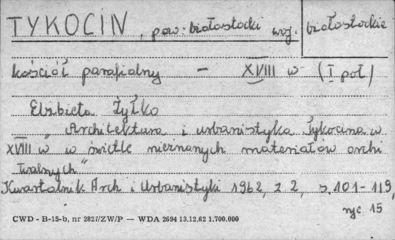 TYKOCIN, pow. białostocki woj. białostockie
kościół parafialny – XVIII w (I poł)
Elżbieta Żyłko
"Architektura i urbanistyka Tykocina w
XVIII w w świetle nieznanych materiałów archi
walnych"
Kwartalnik Arch i Urbanistyki 1962, z 2, s. 101-119,
ryc. 15
CWD - B-15-b, nr 2827/ZW/P — WDA 2694 13.12.62 1.700.000